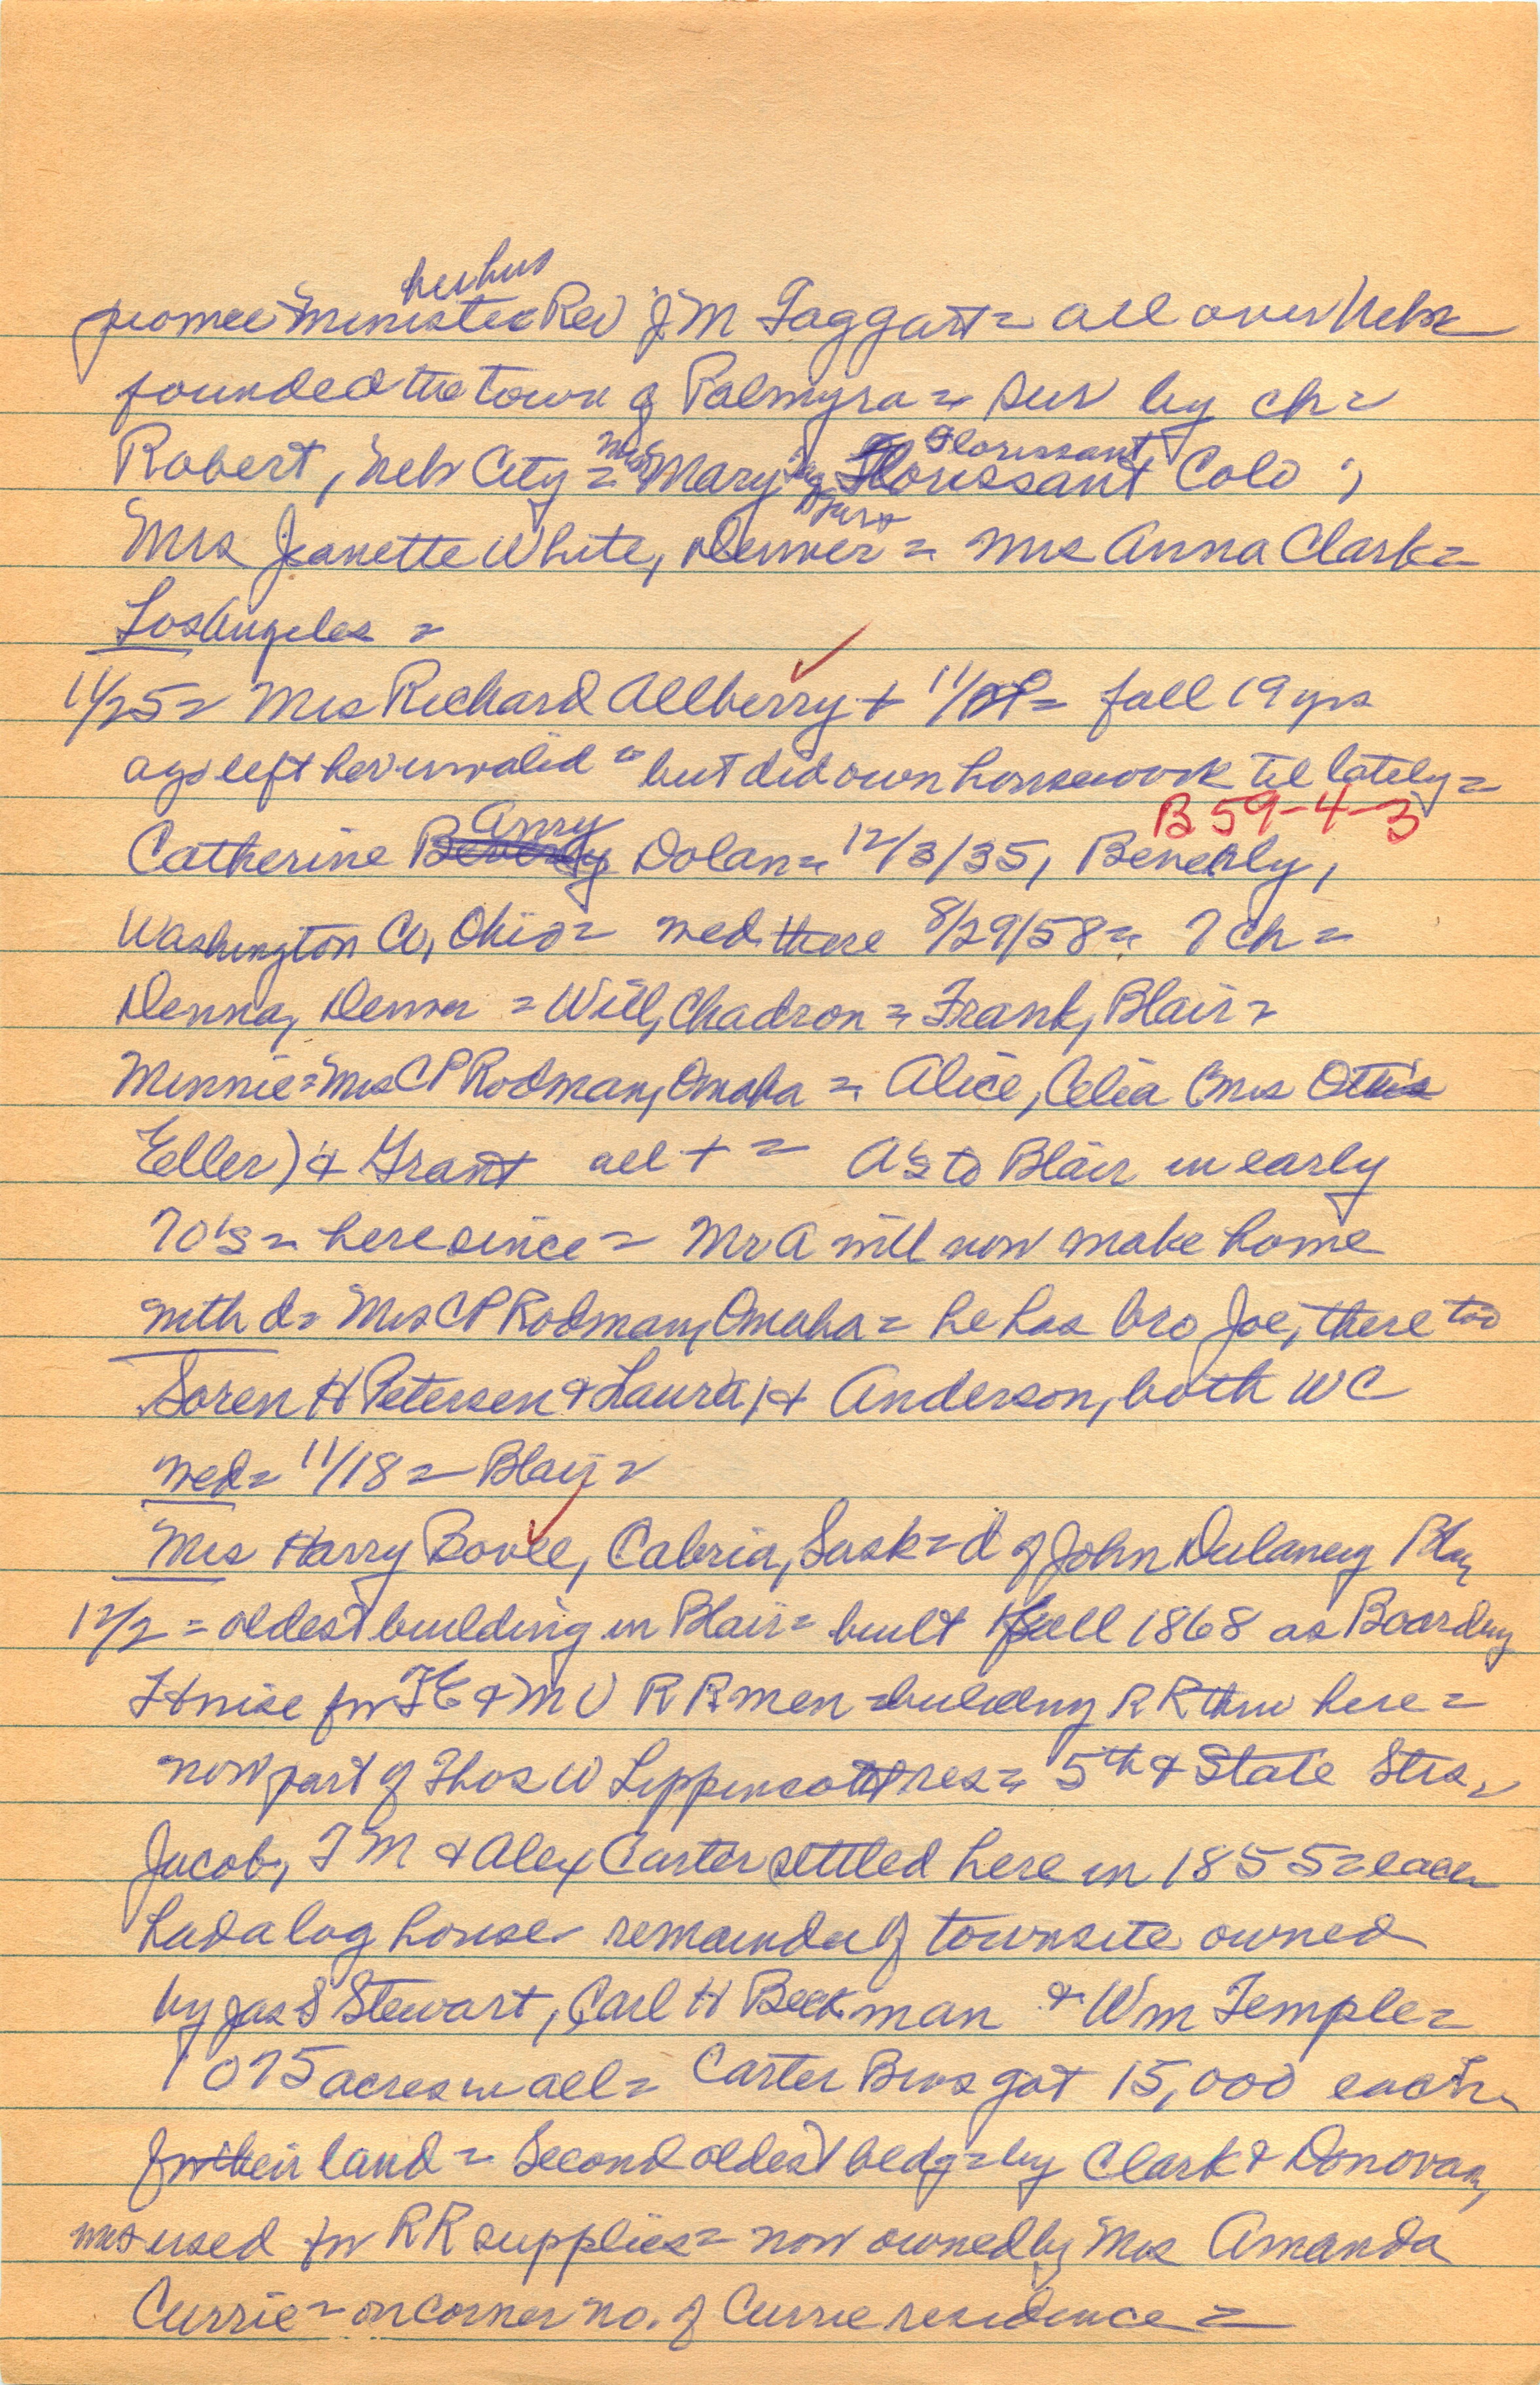 her hus
pioneer minister Rev J M Taggart = all over Nebr
founded the town of Palmyra = sur by ch =
Robert, Neb City = Mrs Mary Florissant Florissant Colo ;
Mrs Jeanette White, Denver = Mrs Anna Clark =
Los Angeles =
11/25 = Mrs Richard Allberry + 11/ = fall 19 yrs
ago left her invalid = but did own housework til lately =
B 59-4-3
Catherine Beverly Amry Dolan = 12/3/35, Beverly,
Washington Co, Ohio = wed there 8/29/58 = 7 ch =
Denna, Denver = Will, Chadron = Frank, Blair =
Minnie = Mrs C P Rodman, Omaha = Alice, Celia (Mrs Ottis
Eller) & Grant all + = A's to Blair in early
70's = here since = Mr A will now make home
with d = Mrs C P Rodman, Omaha = he has bro Joe, there too
Soren H Petersen & Laura H Anderson, both WC
wed = 11/18 = Blair =
Mrs Harry Bovee, Cabria, Sask = d of John Dulaney Blair
12/2 = oldest building in Blair = built fall 1868 as Boarding
House for F E & M V R R men = building R R thru here =
now part of Thos W Lippincott res = 5th & State Strs =
Jacob, T M & Alex Carter settled here in 1855 = each
had a log house = remainder of townsite owned
by Jas S Stewart, Carl H Beckman & Wm Temple =
1075 acres in all = Carter Bros got 15,000 each
for their land = Second oldest bldg = by Clark & Donovan,
was used for R R supplies = now owned by Mrs Amanda
Currie = on corner no. of Currie residence =